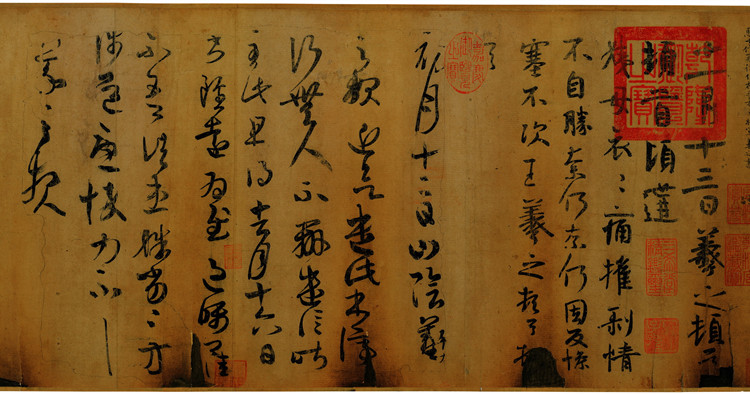 十一月十三日羲之頓首
頓首頃遘
姨母哀〻痛摧剝情
不自勝奈何奈何因反慘
塞不次王羲之頓首頓
首
初月十二日山陰羲
之報近欲遣此書停
行無人不辦遣信昨
至此且得去月十六日
書雖遠為慰過囑卿佳
不吾諸患殊劣〻方
涉道憂悴力不具
羲之報
乾隆御覽之寶
嘉慶御覽之寶